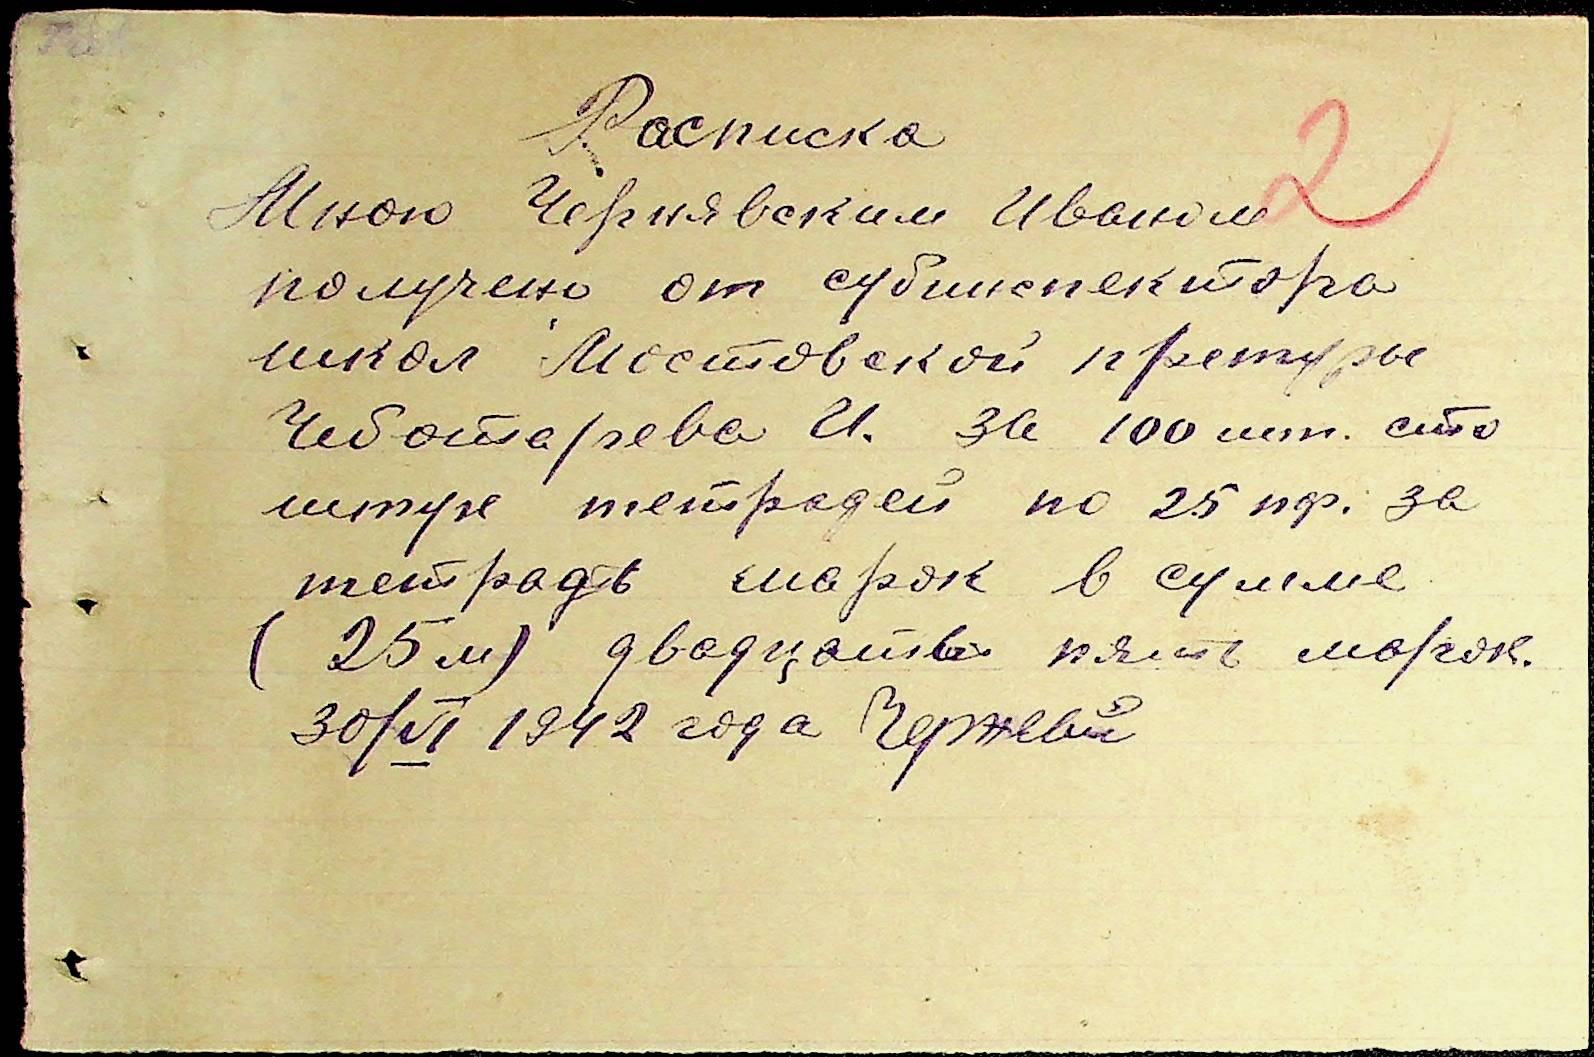 Расписка
2
Мною Чернявским Иваном
получено от субинспектора
школ Мостовской претуры
Чеботарева И. за 100 шт. сто
штук тетрадей по 25 пф. за
тетрадь марок в сумме
(25 м) двадцать пять марок.
30/VI 1942 года